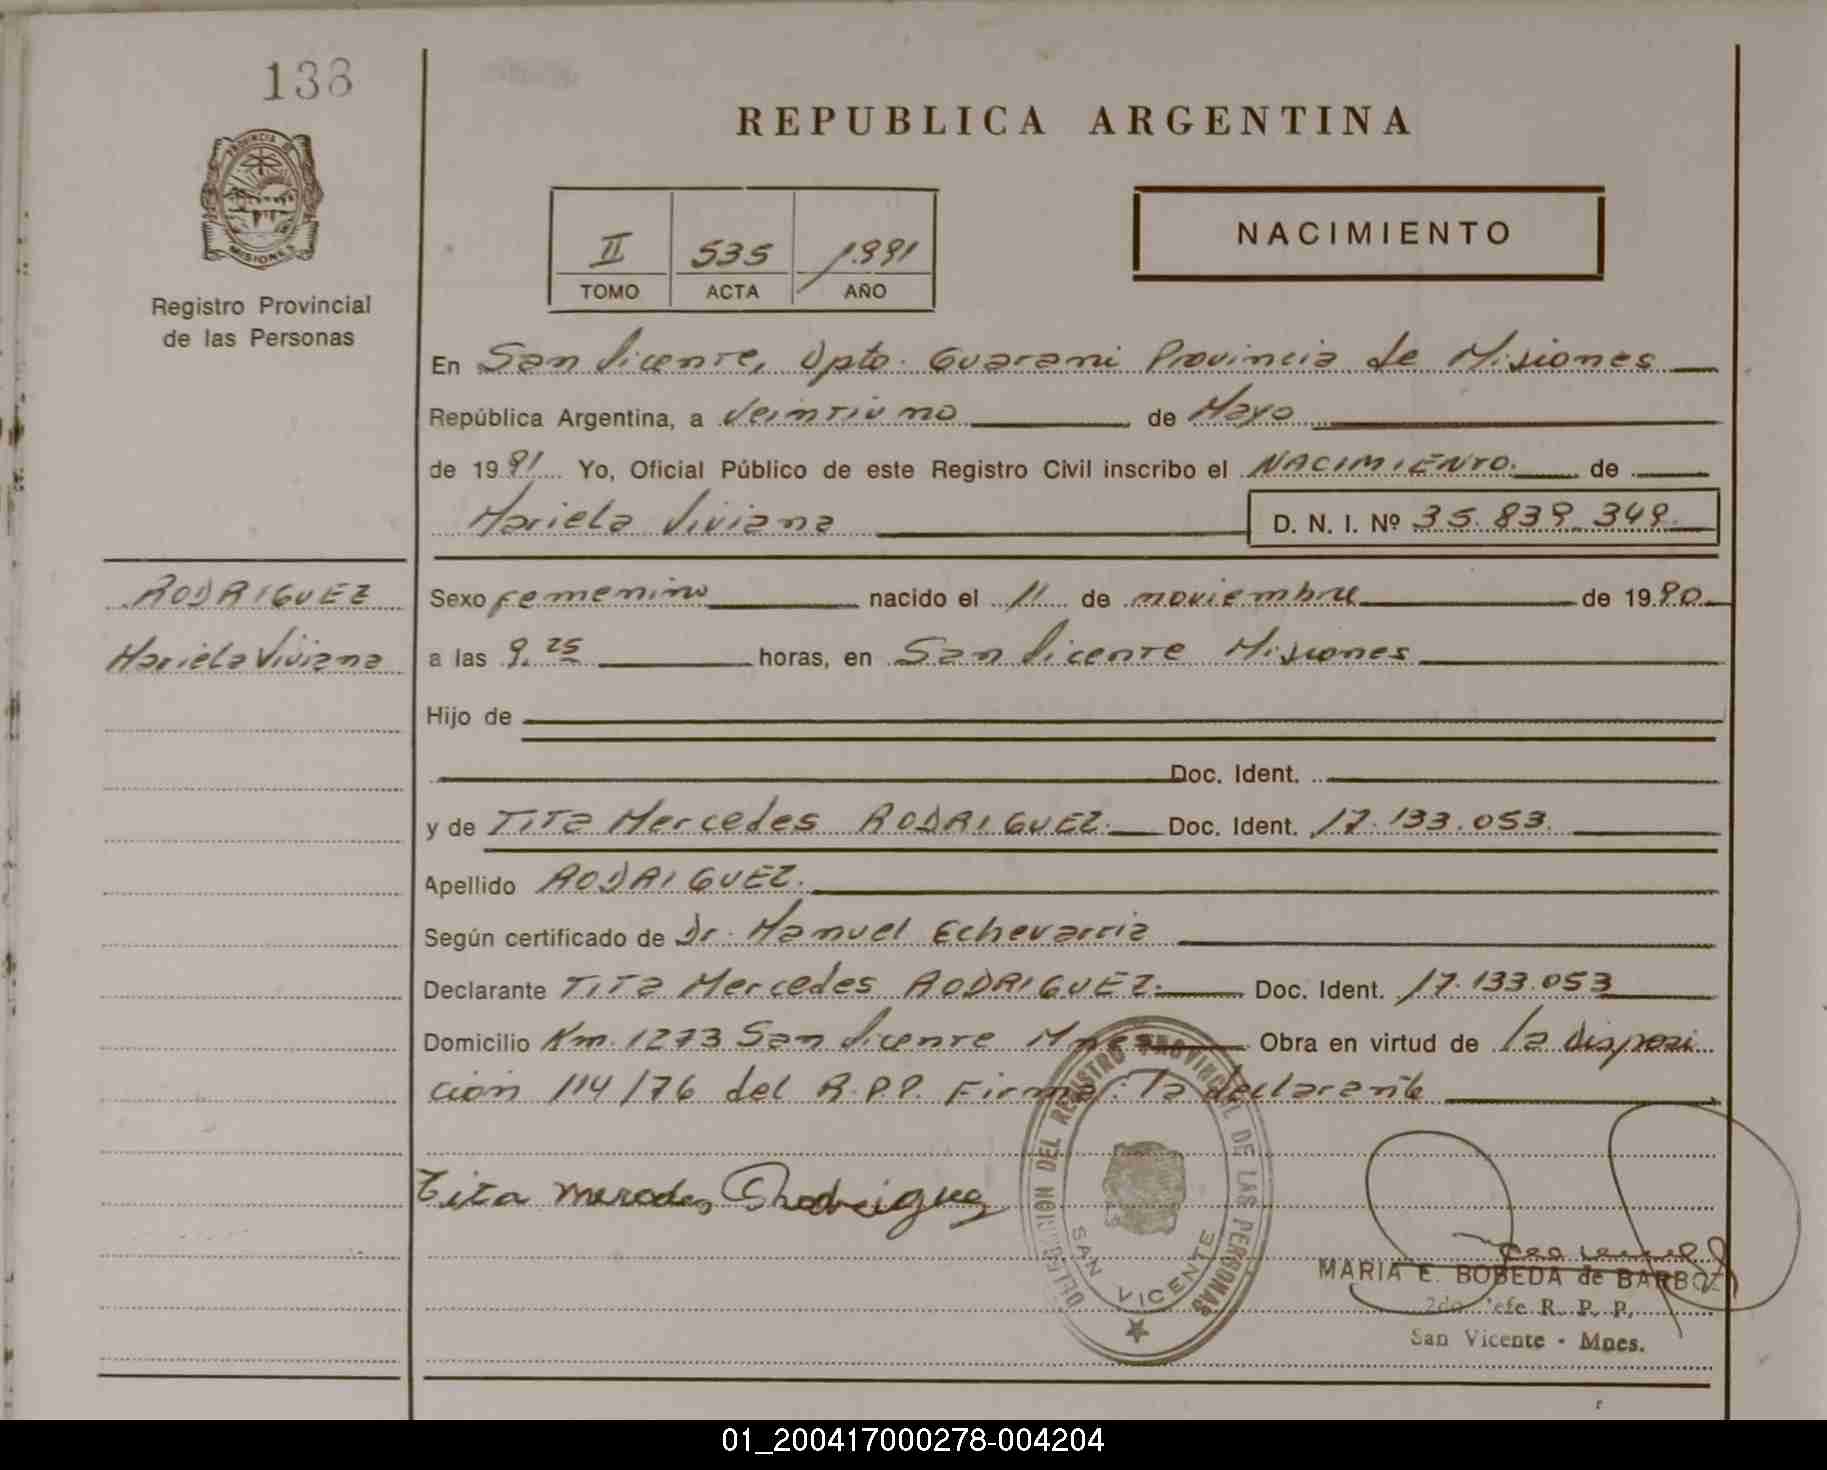 138
REPUBLICA ARGENTINA
PROVINCIA DE
MISIONES
Registro Provincial
de las Personas
NACIMIENTO
II 535 1991
TOMO ACTA AÑO
En San Vicente, Dpto. Guarani Provincia de Misiones
República Argentina, a Veintiuno de Mayo
de 1991 Yo, Oficial Público de este Registro Civil inscribo el NACIMIENTO. de
Mariela Viviana D. N. I. Nº 35.839.349.
RODRIGUEZ
Mariela Viviana
Sexo femenino nacido el 11 de noviembre de 1990
a las 9,25 horas, en San Vicente Misiones
Hijo de
Doc. Ident.
y de Tita Mercedes RODRIGUEZ. Doc. Ident. 17.133.053.
Apellido RODRIGUEZ.
Según certificado de Dr. Manuel Echevarria
Declarante Tita Mercedes RODRIGUEZ. Doc. Ident. 17.133.053
Domicilio Km. 1273 San Vicente Mnes Obra en virtud de la disposi
ción 114/76 del R.P.P. Firma: la declarante
Tita Mercedes Rhodriguez
DELEGACION DEL REGISTRO PROVINCIAL DE LAS PERSONAS
SAN VICENTE
MARIA E. BOBEDA de BARBOZ
2do. Jefe R. P. P.
San Vicente - Mnes.
01_200417000278-004204